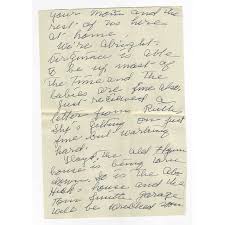 your mom and the
rest of us here
at home.
We're alright.
Virginia is able
to be up most of
the time and the
babies are fine also.
Just received a
letter from Ruth
She's getting on just
fine but working
hard.
the old
house is being torn
down. So is the Abe
house and the
Tom Smith garage
will be wrecked soon